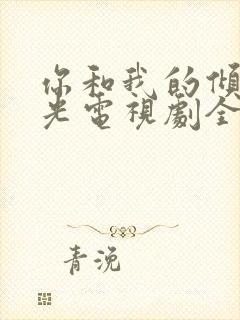 你和我的傾
光電視劇全
青浼